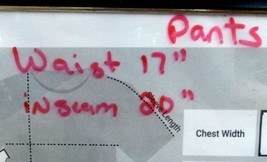 Pants
Waist 17"
inseam 20"
Length
Chest Width